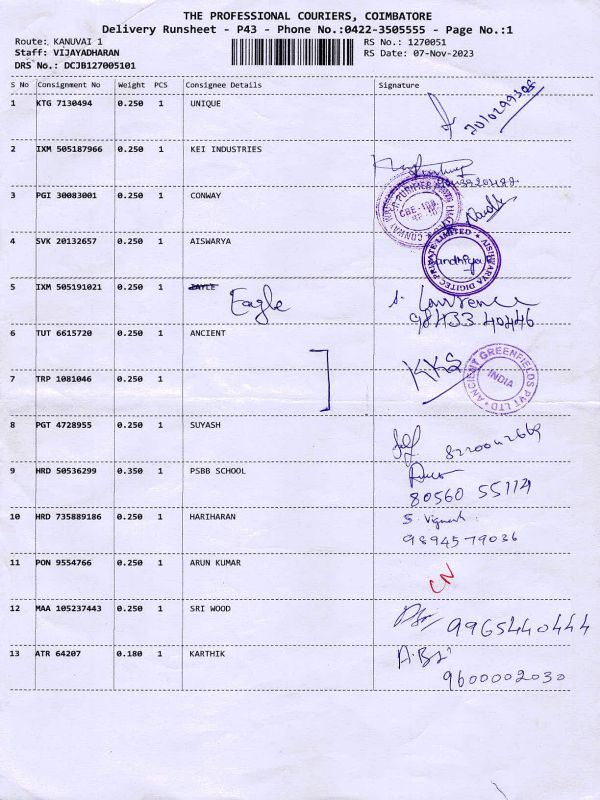 THE PROFESSIONAL COURIERS, COIMBATORE
Delivery Runsheet - P43 - Phone No.:0422-3505555 - Page No.:1
Route: KANUVAI 1 RS No.: 1270051
Staff: VIJAYADHARAN RS Date: 07-Nov-2023
DRS No.: DCJB127005101
S No Consignment No Weight PCS Consignee Details Signature
1 KTG 7130494 0.250 1 UNIQUE
2 IXM 505187966 0.250 1 KEI INDUSTRIES
3 PGI 30083001 0.250 1 CONWAY
4 SVK 20132657 0.250 1 AISWARYA
AISHWARYA DIGITEC PRIVATE LIMITED
5 IXM 505191021 0.250 1 Eagle S. Lawrence
98433 40446
6 TUT 6615720 0.250 1 ANCIENT
KKS ANCIENT GREENFIELDS PVT LTD INDIA
7 TRP 1081046 0.250 1
8 PGT 4728955 0.250 1 SUYASH
9 HRD 50536299 0.350 1 PSBB SCHOOL
80560 55114
10 HRD 735889186 0.250 1 HARIHARAN S. Vignesh
9894579036
11 PON 9554766 0.250 1 ARUN KUMAR CN
12 MAA 105237443 0.250 1 SRI WOOD 9965440444
13 ATR 64207 0.180 1 KARTHIK
9600002030